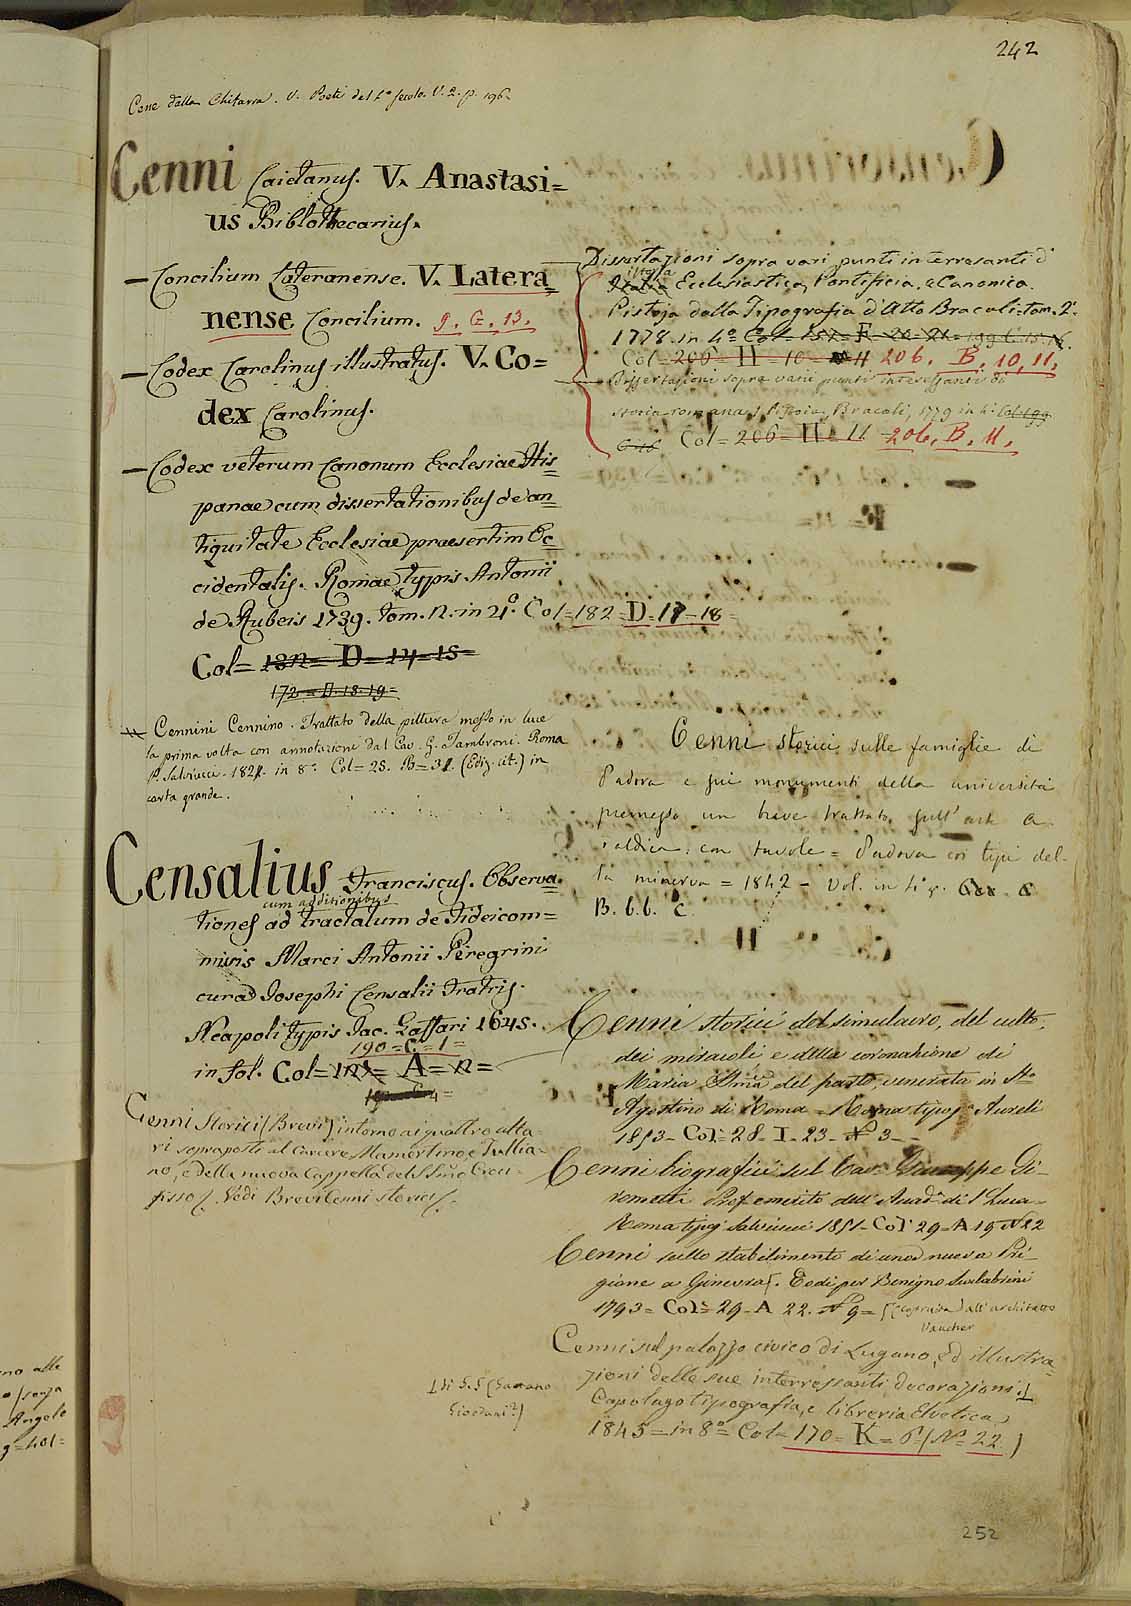 242
Cene dalla Chitarra. V. Poeti del 1.º secolo. V. 2. p. 196.
Cenni Caietanus. V. Anastasi=
us Bibliothecarius.
— Concilium Lateranense. V. Latera=
nense Concilium. g. G. 13.
— Codex Carolinus illustratus. V. Co=
dex Carolinus.
— Codex veterum Canonum Ecclesiae His=
panae cum dissertationibus de an=
tiquitate Ecclesiae praesertim Oc=
cidentalis. Romae typis Antonii
de Rubeis 1739. tom. 2. in 4º. Col=182=D=17=18=
Col= 182= D=14=15=
172=D.18.19=
Cennini Cennino. Trattato della pittura messo in luce
la prima volta con annotazioni dal Cav. G. Tambroni. Roma
P. Salviucci. 1821. in 8º. Col=25. B=31. (Ediz. cit.) in
carta grande.
Censalius Franciscus. Observa=
cum additionibus
tiones ad tractatum de Fideicom=
missis Marci Antonii Peregrini
cura Iosephi Censalii Fratris.
Neapoli typis Iac. Gaffari 1645.
190=C=1=
in fol. Col= A=2=
Cenni Storici (Brevi) intorno ai quattro alta=
ri sovrapposti al Carcere Mamertino, e Tullia=
no, e della nuova Cappella del SSmo Croci=
fisso. Vedi Brevi Cenni storici.
Dissertazioni sopra vari punti interessanti d'
istoria
Italia Ecclesiastica, Pontificia, e Canonica.
Pistoja dalla Tipografia d'Atto Bracali. tom. 2.
1778. in 4º
Col=206=H=10=11 206. B. 10, 11.
Dissertazioni sopra varii punti interessanti di
storia romana. Pistoia, Bracali, 1779 in 4º. Col 199
C 16 Col=206=H=11 206, B, 11,
Cenni storici sulle famiglie di
Padova e sui monumenti della università
premesso un breve trattato sull'arte a=
raldica: con tavole = Padova coi tipi del=
la minerva = 1842 - Vol. in 4º
B. 6. 6. C
Cenni storici del simulacro, del culto,
dei miracoli e della coronazione di
Maria SSma del parto, venerata in Sto
Agostino di Roma = Roma tipogª Aureli
1853 - Col= 28- I- 23- Nº 3--
Cenni biografici sul Cav. Giuseppe Gi=
rometti Prof. emerito dell'Accadª di S. Luca
Roma tipog Salviucci 1851- Col 29-A 19 N 22
Cenni sullo stabilimento di una nuova Pri=
gione a Ginevra. Lodi per Benigno Scalabrini
1793= Col= 29-A 22. Nº 9= (Costruita) all'architetto
Vaucher
Cenni sul palazzo civico di Lugano, ed illustra=
zioni delle sue interessanti decorazioni
[di G. G (Gaetano
Giordani?)]
Capolago tipografia, e libreria Elvetica
1845= in 8º= Col= 170= K= 6=(Nº= 22.)
252